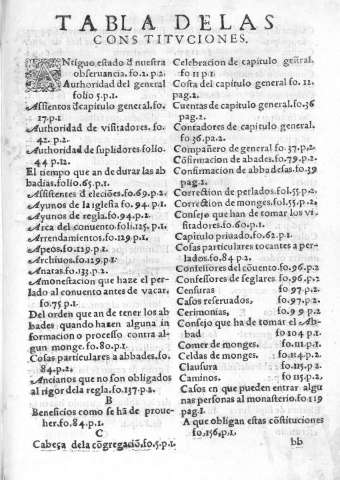 TABLA DELAS
CONSTITVCIONES.
ANtiguo estado đ nuestra
obseruancia. fo. 2. p. 2.
Authoridad del general
folio 5. p. 1.
Assientos đ capitulo general. fo.
17. p. 1
Authoridad de visitadores. fo.
42. p. 2.
Authoridad de suplidores. folio.
44 p. 12.
El tiempo que an de durar las ab
badias. folio. 65. p. 1.
Assistentes đ eleciões. fo. 69. p. 2.
Ayunos de la iglesia fo. 94. p. 1.
Ayunos de regla fo. 94. p. 2.
Arca del conuento foli. 125. p. 1.
Arrendamientos. fo. 129. p. 1.
Apeos. fo. 129. p. 2.
Archiuos. fo. 129. p. 1.
Anatas. fo. 133. p. 2.
Amonestacion que haze el per
lado al conuento antes de vacar.
fo. 75 p. 1.
Del orden que an de tener los ab
bades quando hazen alguna in
formacion o processo contra al-
gun monge. fo. 80. p. 1.
Cosas particulares a abbades. fo.
84. p. 2.
Ancianos que no son obligados
al rigor de la regla. fo. 137. p. 2.
B
Beneficios como se hã de proue-
her. fo. 84. p. 1.
C
Cabeça de la cõgregaciõ. fo. 5. p. 1.
Celebracion de capitulo general.
fo 11 p 1.
Costa del capitulo general. fo. 12.
pag. 2.
Cuentas de capitulo general. fo. 36
pag. 2.
Contadores de capitulo general.
fo. 36. pa. 2.
Compañero de general fo. 37. p. 2.
Cõfirmacion de abades. fo. 79. p. 2.
Confirmacion de abbadesas. fo. 39
pag. 2.
Correction de perlados. fol. 55. p. 2.
Correction de monges. fol. 55. p. 2.
Consejo que han de tomar los vi
sitadores. fo. 60. p. 1.
Capitulo priuado. fo. 62. p. 1.
Cosas particulares tocantes a per-
lados. fo. 84 p. 2.
Confessores del cõuento. fo. 96. p. 2
Confessores de seglares. fo. 96. p.
Censuras fo. 97. p. 2.
Casos reseruados, fo. 97. p. 2
Cerimonias, fo. 99 9
Consejo que ha de tomar el Ab-
bad fo 104 p 1.
Comer de monges. fo. 111. p. 1.
Celdas de monges. fo. 114. p. 2.
Clausura fo. 115. p. 2
Caminos. fo. 115. p. 2.
Casos en que pueden entrar algu
nas personas al monasterio. fo. 119
pag. 1.
A que obligan estas cõstituciones
fo. 156. p. 1.
bb